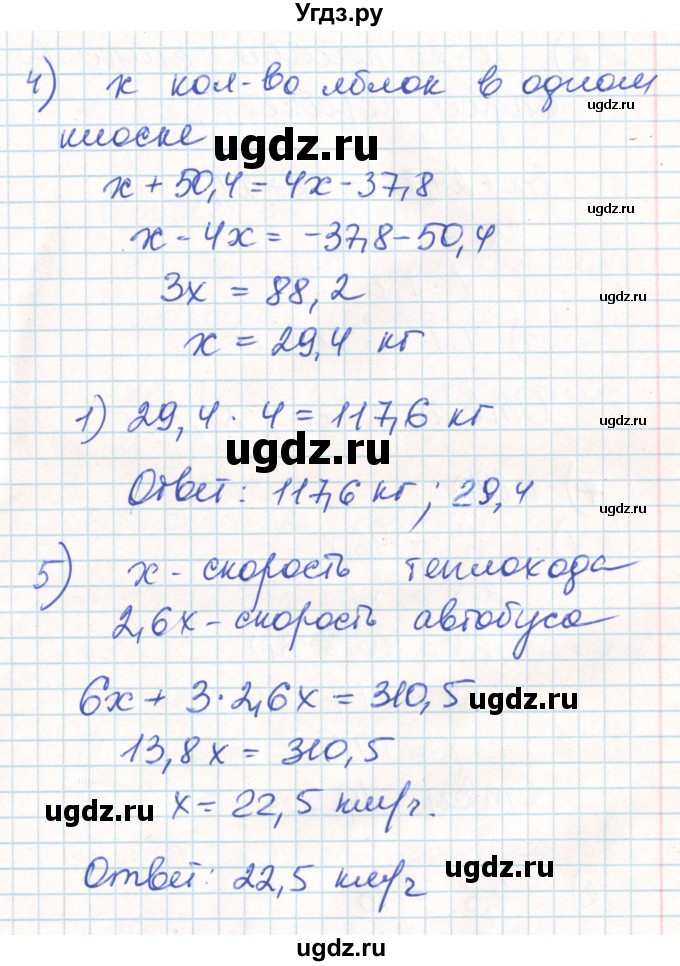 Угдз.ру
4) x кол-во яблок в одном
ugdz.ru
киоске
ugdz.ru
x + 50,4 = 4x - 37,8
ugdz.ru
x - 4x = -37,8 - 50,4
3x = 88,2
ugdz.ru
x = 29,4 кг
1) 29,4 · 4 = 117,6 кг
ugdz.ru
ugdz.ru
Ответ: 117,6 кг; 29,4
ugdz.ru
5) x - скорость теплохода
ugdz.ru
2,6x - скорость автобуса
6x + 3 · 2,6x = 310,5
ugdz.ru
13,8x = 310,5
x = 22,5 км/г.
ugdz.ru
ugdz.ru
Ответ: 22,5 км/г
ugdz.ru
ugdz.ru